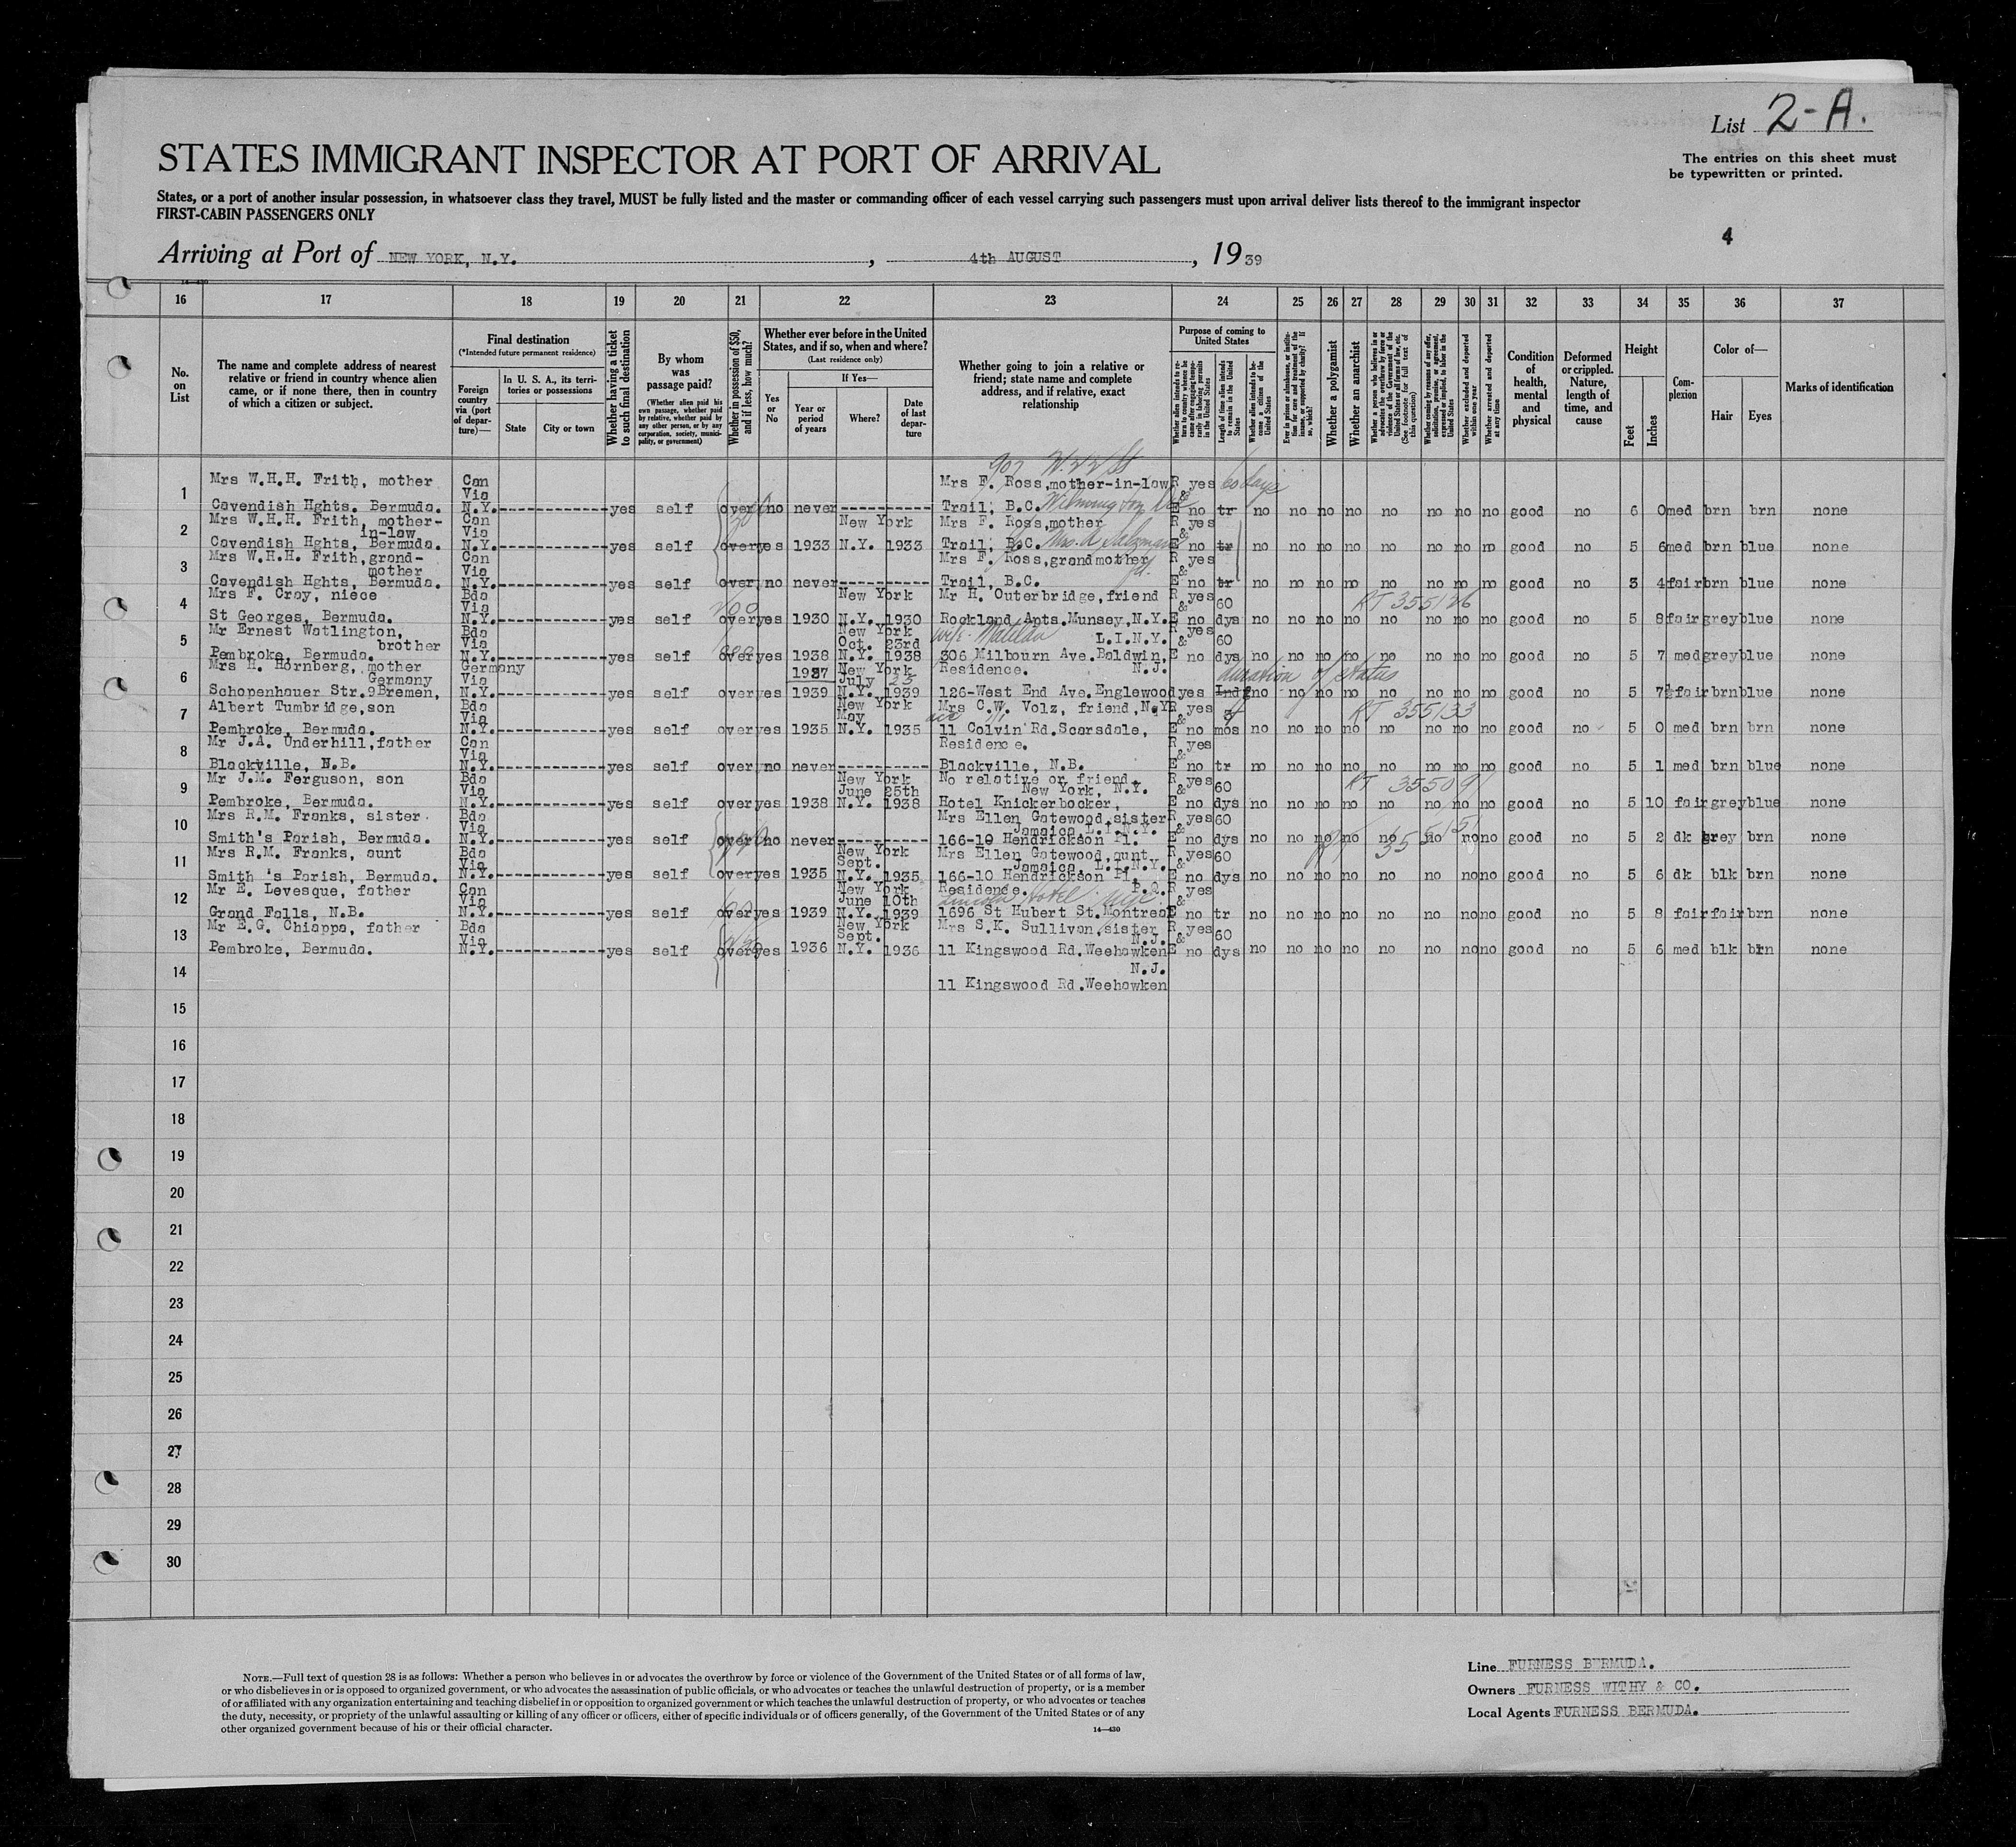 List 2-A.
STATES IMMIGRANT INSPECTOR AT PORT OF ARRIVAL
The entries on this sheet must
be typewritten or printed.
States, or a port of another insular possession, in whatsoever class they travel, MUST be fully listed and the master or commanding officer of each vessel carrying such passengers must upon arrival deliver lists thereof to the immigrant inspector
FIRST-CABIN PASSENGERS ONLY
4
Arriving at Port of NEW YORK, N.Y. , 4th AUGUST , 1939
16 17 18 19 20 21 22 23 24 25 26 27 28 29 30 31 32 33 34 35 36 37
No. on List
The name and complete address of nearest relative or friend in country whence alien came, or if none there, then in country of which a citizen or subject.
Final destination
(*Intended future permanent residence)
Foreign country via (port of departure)—
In U. S. A., its territories or possessions
State
City or town
Whether having a ticket to such final destination
By whom was passage paid?
(Whether alien paid his own passage, whether paid by relative, whether paid by any other person, or by any corporation, society, municipality, or government)
Whether in possession of $50, and if less, how much?
Whether ever before in the United States, and if so, when and where?
(Last residence only)
Yes or No
If Yes—
Year or period of years
Where?
Date of last departure
Whether going to join a relative or friend; state name and complete address, and if relative, exact relationship
Purpose of coming to United States
Whether alien intends to return to country whence he came after engaging temporarily in laboring pursuits in the United States
Length of time alien intends to remain in the United States
Whether alien intends to become a citizen of the United States
Ever in prison or almshouse, or institution for care and treatment of the insane, or supported by charity? If so, which?
Whether a polygamist
Whether an anarchist
Whether a person who believes in or advocates the overthrow by force or violence of the Government of the United States or all forms of law, etc. (See footnote for full text of this question)
Whether coming by reason of any offer, solicitation, promise, or agreement, expressed or implied, to labor in the United States
Whether excluded and deported within one year
Whether arrested and deported at any time
Condition of health, mental and physical
Deformed or crippled. Nature, length of time, and cause
Height
Feet
Inches
Complexion
Color of—
Hair
Eyes
Marks of identification
907 W. 22 St
1 Mrs W.H.H. Frith, mother Can Via Mrs F. Ross, mother-in-law R yes & 60 days
Cavendish Hghts. Bermuda. N.Y. yes self over no never Trail, B.C. Wilmington E no tr no no no no no no no no good no 6 0 med brn brn none
2 Mrs W.H.H. Frith, mother-in-law Can Via New York Mrs F. Ross, mother R yes &
Cavendish Hghts, Bermuda. N.Y. yes self over yes 1933 N.Y. 1933 Trail, B.C. Mrs. A. Salzman E no tr no no no no no no no no good no 5 6 med brn blue none
3 Mrs W.H.H. Frith, grand-mother Can Via Mrs F. Ross, grandmother R yes &
Cavendish Hghts, Bermuda. N.Y. yes self over no never Trail, B.C. E no tr no no no no no no no no good no 3 4 fair brn blue none
4 Mrs F. Cray, niece Bda Via New York Mr H. Outerbridge, friend R yes & 60 RT 355126
St Georges, Bermuda. N.Y. yes self over yes 1930 N.Y. 1930 Rockland Apts. Munsey, N.Y. E no dys no no no no no no no no good no 5 8 fair grey blue none
5 Mr Ernest Watlington, brother Bda Via New York Oct. 23rd wife Matilda L.I.N.Y. R yes & 60
Pembroke, Bermuda. N.Y. yes self over yes 1938 N.Y. 1938 306 Milbourn Ave. Baldwin, E no dys no no no no no no no no good no 5 7 med grey blue none
6 Mrs H. Hornberg, mother Germany Germany Via 1937 New York July 23 Residence. N.J. duration of status
Schopenhauer Str. 9 Bremen, N.Y. yes self over yes 1939 N.Y. 1939 126-West End Ave. Englewood yes Indf no no no no no no no no good no 5 7½ fair brn blue none
7 Albert Tumbridge, son Bda Via New York May Mrs C.W. Volz, friend, N.Y. R yes & RT 355133
Pembroke, Bermuda. N.Y. yes self over yes 1935 N.Y. 1935 11 Colvin Rd. Scarsdale, E no mos no no no no no no no no good no 5 0 med brn brn none
8 Mr J.A. Underhill, father Can Via Residence. R yes &
Blackville, N.B. N.Y. yes self over no never Blackville, N.B. E no tr no no no no no no no no good no 5 1 med brn blue none
9 Mr J.M. Ferguson, son Bda Via New York June 25th No relative or friend. New York, N.Y. R yes & 60 RT 355091
Pembroke, Bermuda. N.Y. yes self over yes 1938 N.Y. 1938 Hotel Knickerbocker, E no dys no no no no no no no no good no 5 10 fair grey blue none
10 Mrs R.M. Franks, sister Bda Via Mrs Ellen Gatewood, sister Jamaica, L.I.N.Y. R yes & 60
Smith's Parish, Bermuda. N.Y. yes self over no never 166-10 Hendrickson Pl. E no dys no no no no no no no no good no 5 2 dk grey brn none
11 Mrs R.M. Franks, aunt Bda Via New York Sept. Mrs Ellen Gatewood, aunt Jamaica, L.I.N.Y. R yes & 60
Smith 's Parish, Bermuda. N.Y. yes self over yes 1935 N.Y. 1935 166-10 Hendrickson Pl. E no dys no no no no no no no no good no 5 6 dk blk brn none
12 Mr E. Levesque, father Can Via New York June 10th Residence. P.Q. Lincoln Hotel R yes &
Grand Falls, N.B. N.Y. yes self over yes 1939 N.Y. 1939 1696 St Hubert St. Montreal E no tr no no no no no no no no good no 5 8 fair fair brn none
13 Mr E.G. Chiappa, father Bda Via New York Sept. Mrs S.K. Sullivan, sister N.J. R yes & 60
Pembroke, Bermuda. N.Y. yes self over yes 1936 N.Y. 1936 11 Kingswood Rd. Weehawken E no dys no no no no no no no no good no 5 6 med blk brn none
14 N.J.
11 Kingswood Rd. Weehawken
15
16
17
18
19
20
21
22
23
24
25
26
27
28
29
30
NOTE.—Full text of question 28 is as follows: Whether a person who believes in or advocates the overthrow by force or violence of the Government of the United States or of all forms of law,
or who disbelieves in or is opposed to organized government, or who advocates the assassination of public officials, or who advocates or teaches the unlawful destruction of property, or is a member
of or affiliated with any organization entertaining and teaching disbelief in or opposition to organized government or which teaches the unlawful destruction of property, or who advocates or teaches
the duty, necessity, or propriety of the unlawful assaulting or killing of any officer or officers, either of specific individuals or of officers generally, of the Government of the United States or of any
other organized government because of his or their official character.
14—430
Line FURNESS BERMUDA.
Owners FURNESS WITHY & CO.
Local Agents FURNESS BERMUDA.